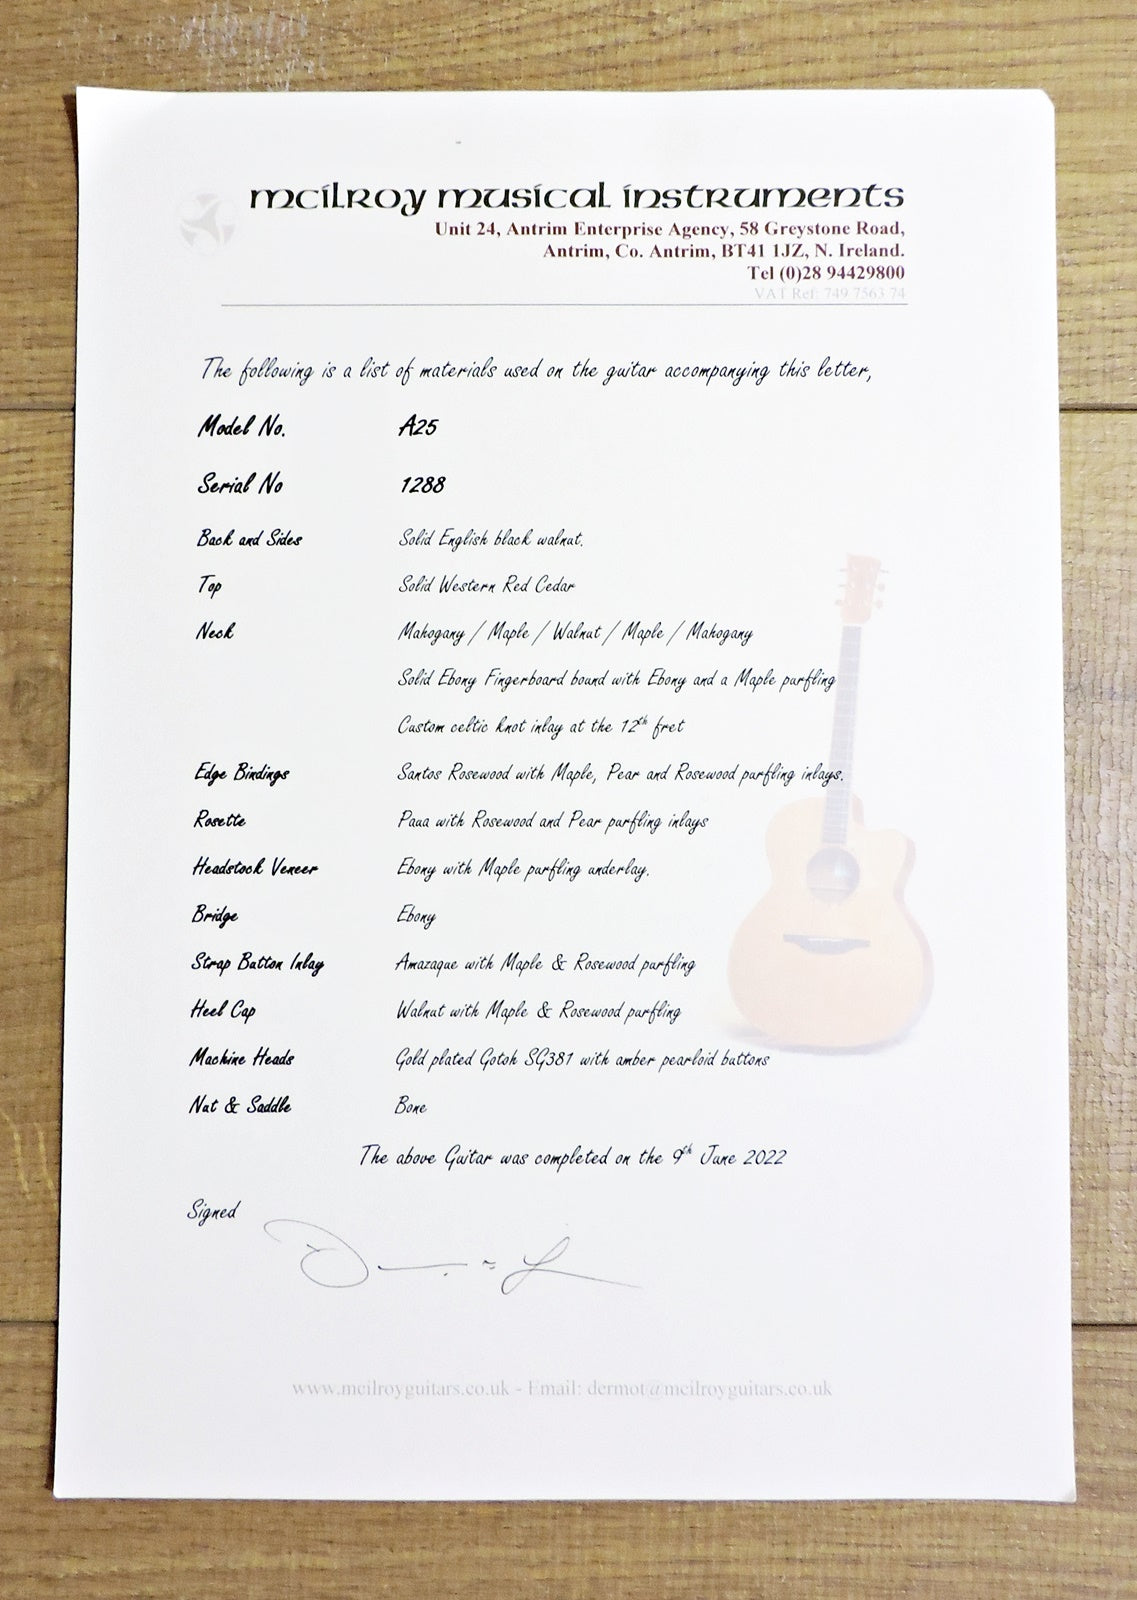 mcilroy musical instruments
Unit 24, Antrim Enterprise Agency, 58 Greystone Road,
Antrim, Co. Antrim, BT41 1JZ, N. Ireland.
Tel (0)28 94429800
VAT Ref: 749 7563 74
The following is a list of materials used on the guitar accompanying this letter,
Model No. A25
Serial No 1288
Back and Sides Solid English black walnut.
Top Solid Western Red Cedar
Neck Mahogany / Maple / Walnut / Maple / Mahogany
Solid Ebony Fingerboard bound with Ebony and a Maple purfling
Custom celtic knot inlay at the 12th fret
Edge Bindings Santos Rosewood with Maple, Pear and Rosewood purfling inlays.
Rosette Paua with Rosewood and Pear purfling inlays
Headstock Veneer Ebony with Maple purfling underlay.
Bridge Ebony
Strap Button Inlay Amazaque with Maple & Rosewood purfling
Heel Cap Walnut with Maple & Rosewood purfling
Machine Heads Gold plated Gotoh SG381 with amber pearloid buttons
Nut & Saddle Bone
The above Guitar was completed on the 9th June 2022
Signed
www.mcilroyguitars.co.uk - Email: dermot@mcilroyguitars.co.uk